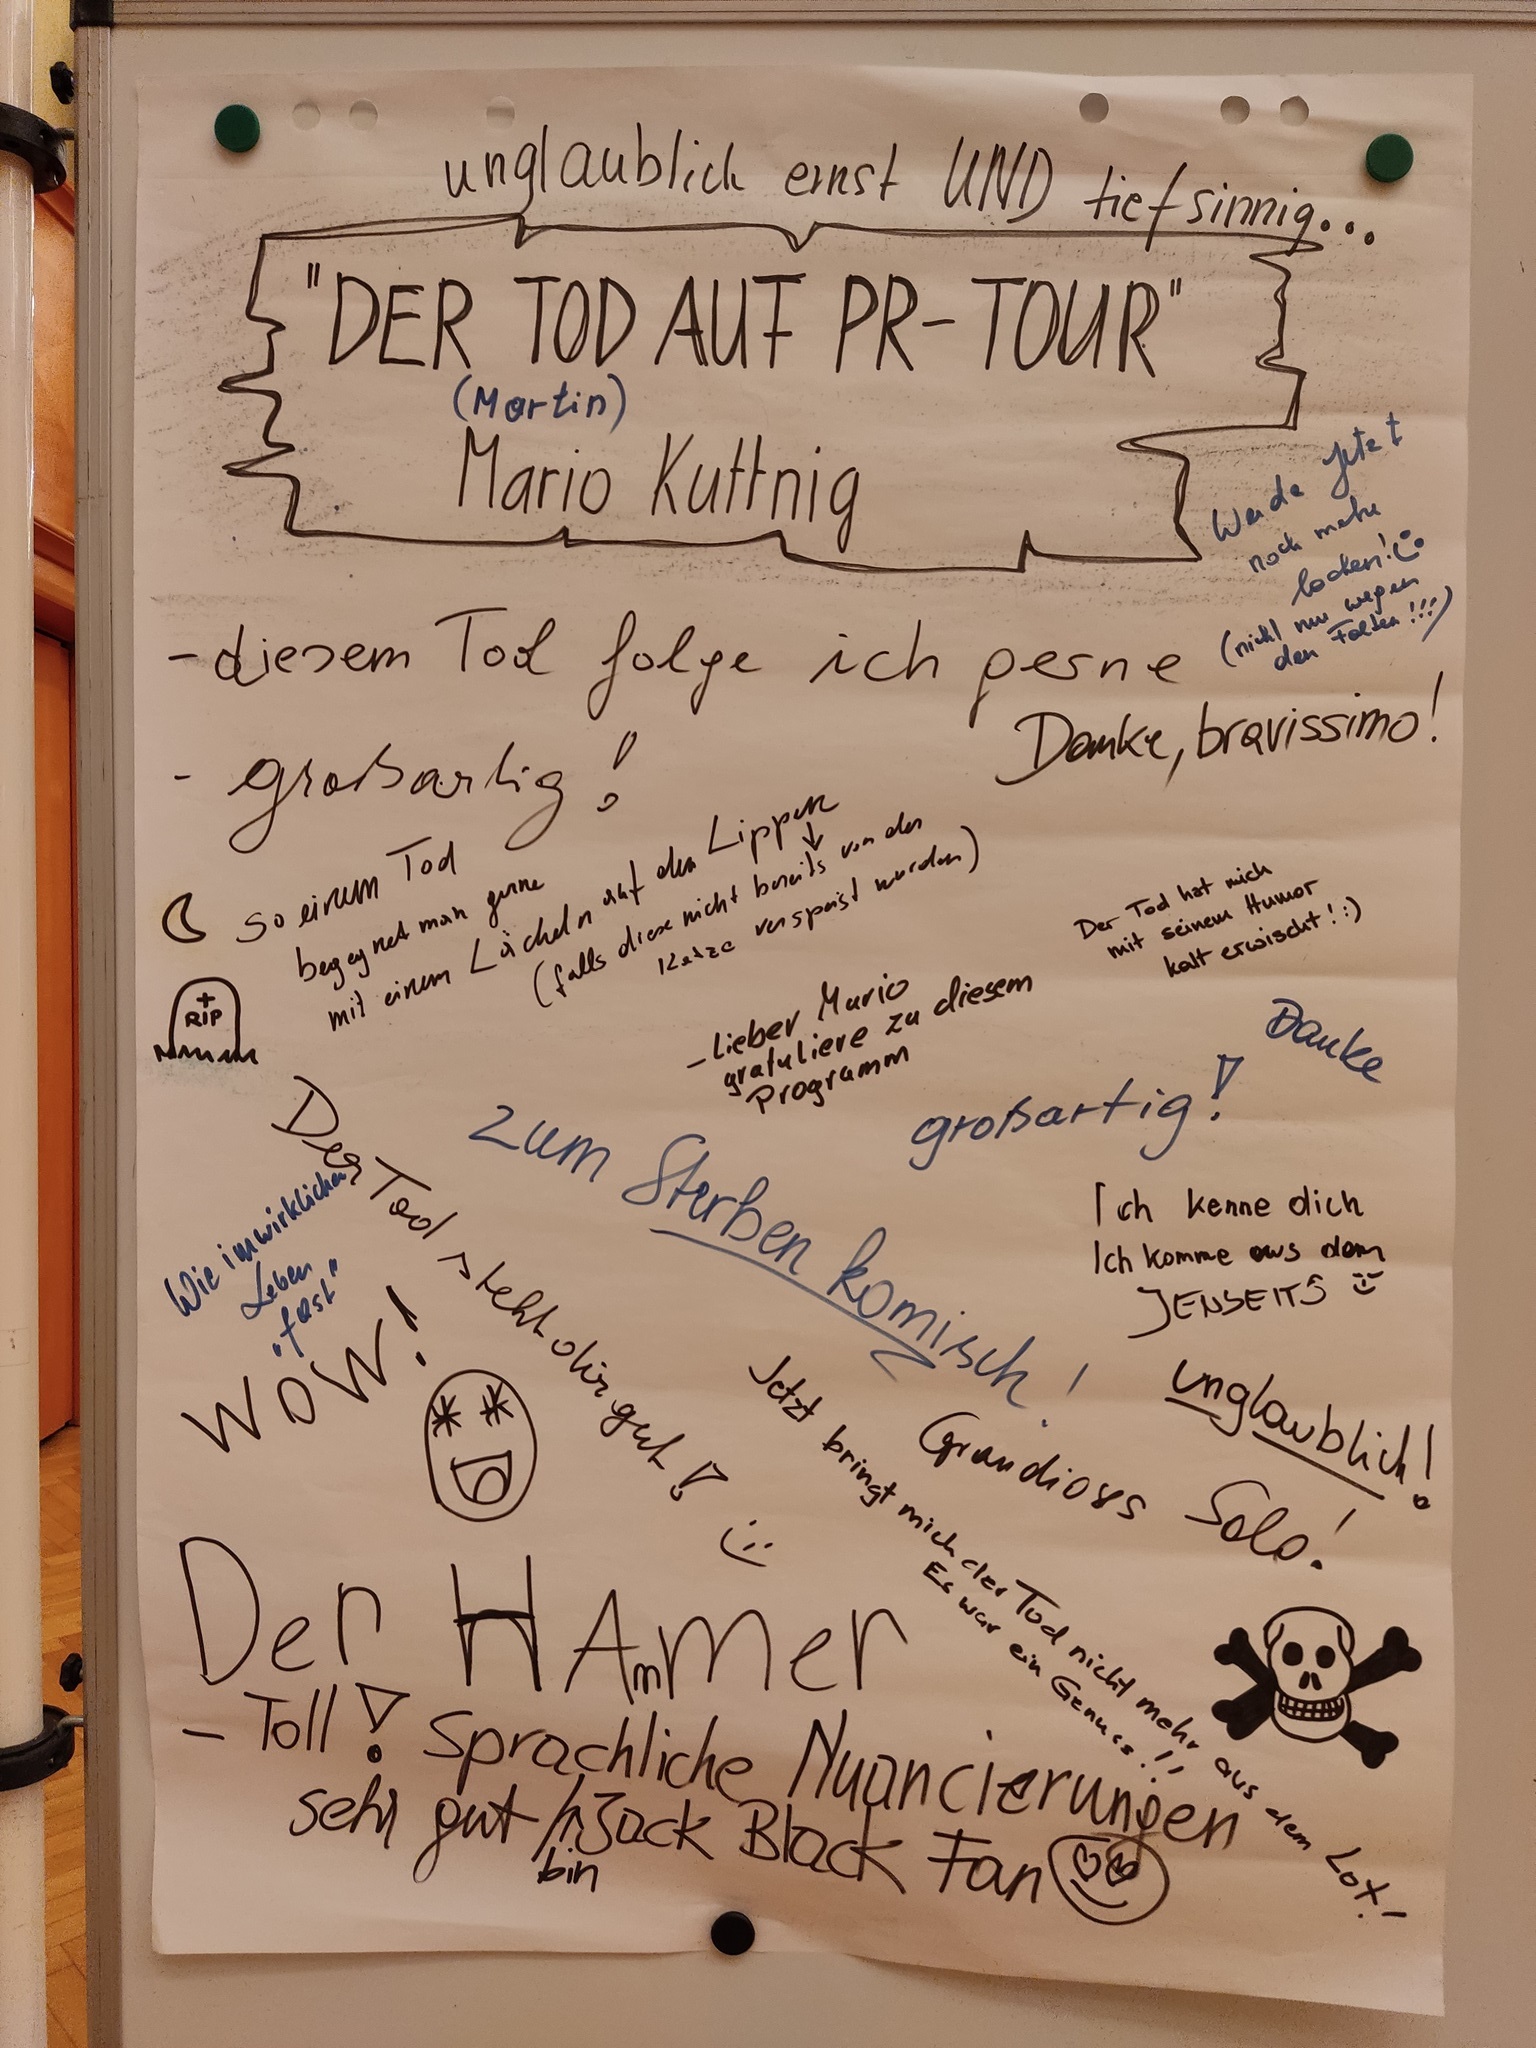 unglaublich ernst UND tiefsinnig...
"DER TOD AUF PR-TOUR"
(Martin)
Mario Kuttnig
Werde Jetzt
noch mehr
lachen!
(nicht nur wegen
den Falten!!!)
- diesem Tod folge ich gerne
Danke, bravissimo!
- großartig!
so einem Tod
begegnet man gerne
mit einem Lächeln auf den Lippen
(falls diese nicht bereits von der
Katze verspeist wurden)
Der Tod hat mich
mit seinem Humor
kalt erwischt! :)
RIP
- Lieber Mario
gratuliere zu diesem
Programm
Danke
großartig!
zum Sterben komisch!
Der Tod steht dir gut!
Wie im wirklichen
Leben
"fast"
WOW!
Ich kenne dich
Ich komme aus dem
JENSEITS
unglaublich!
Grandioses Solo!
Jetzt bringt mich der Tod nicht mehr aus dem Lot!
Es war ein Genuss!!
Der HAmmer
- Toll! Sprachliche Nuancierungen
sehr gut / Jack Black Fan
bin